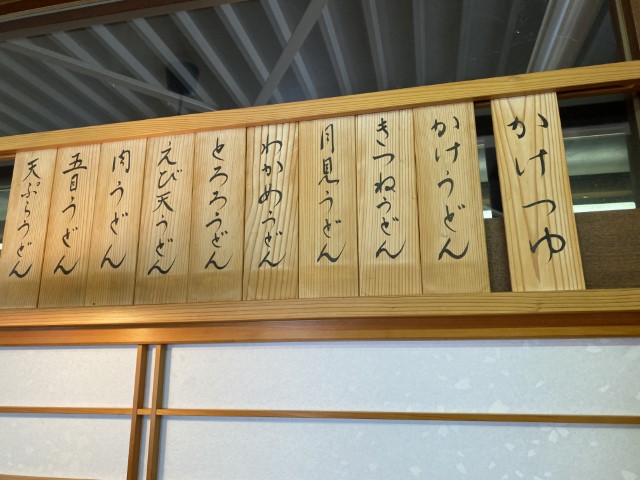 かけつゆ
かけうどん
きつねうどん
月見うどん
わかめうどん
とろろうどん
えび天うどん
肉うどん
五目うどん
天ぷらうどん